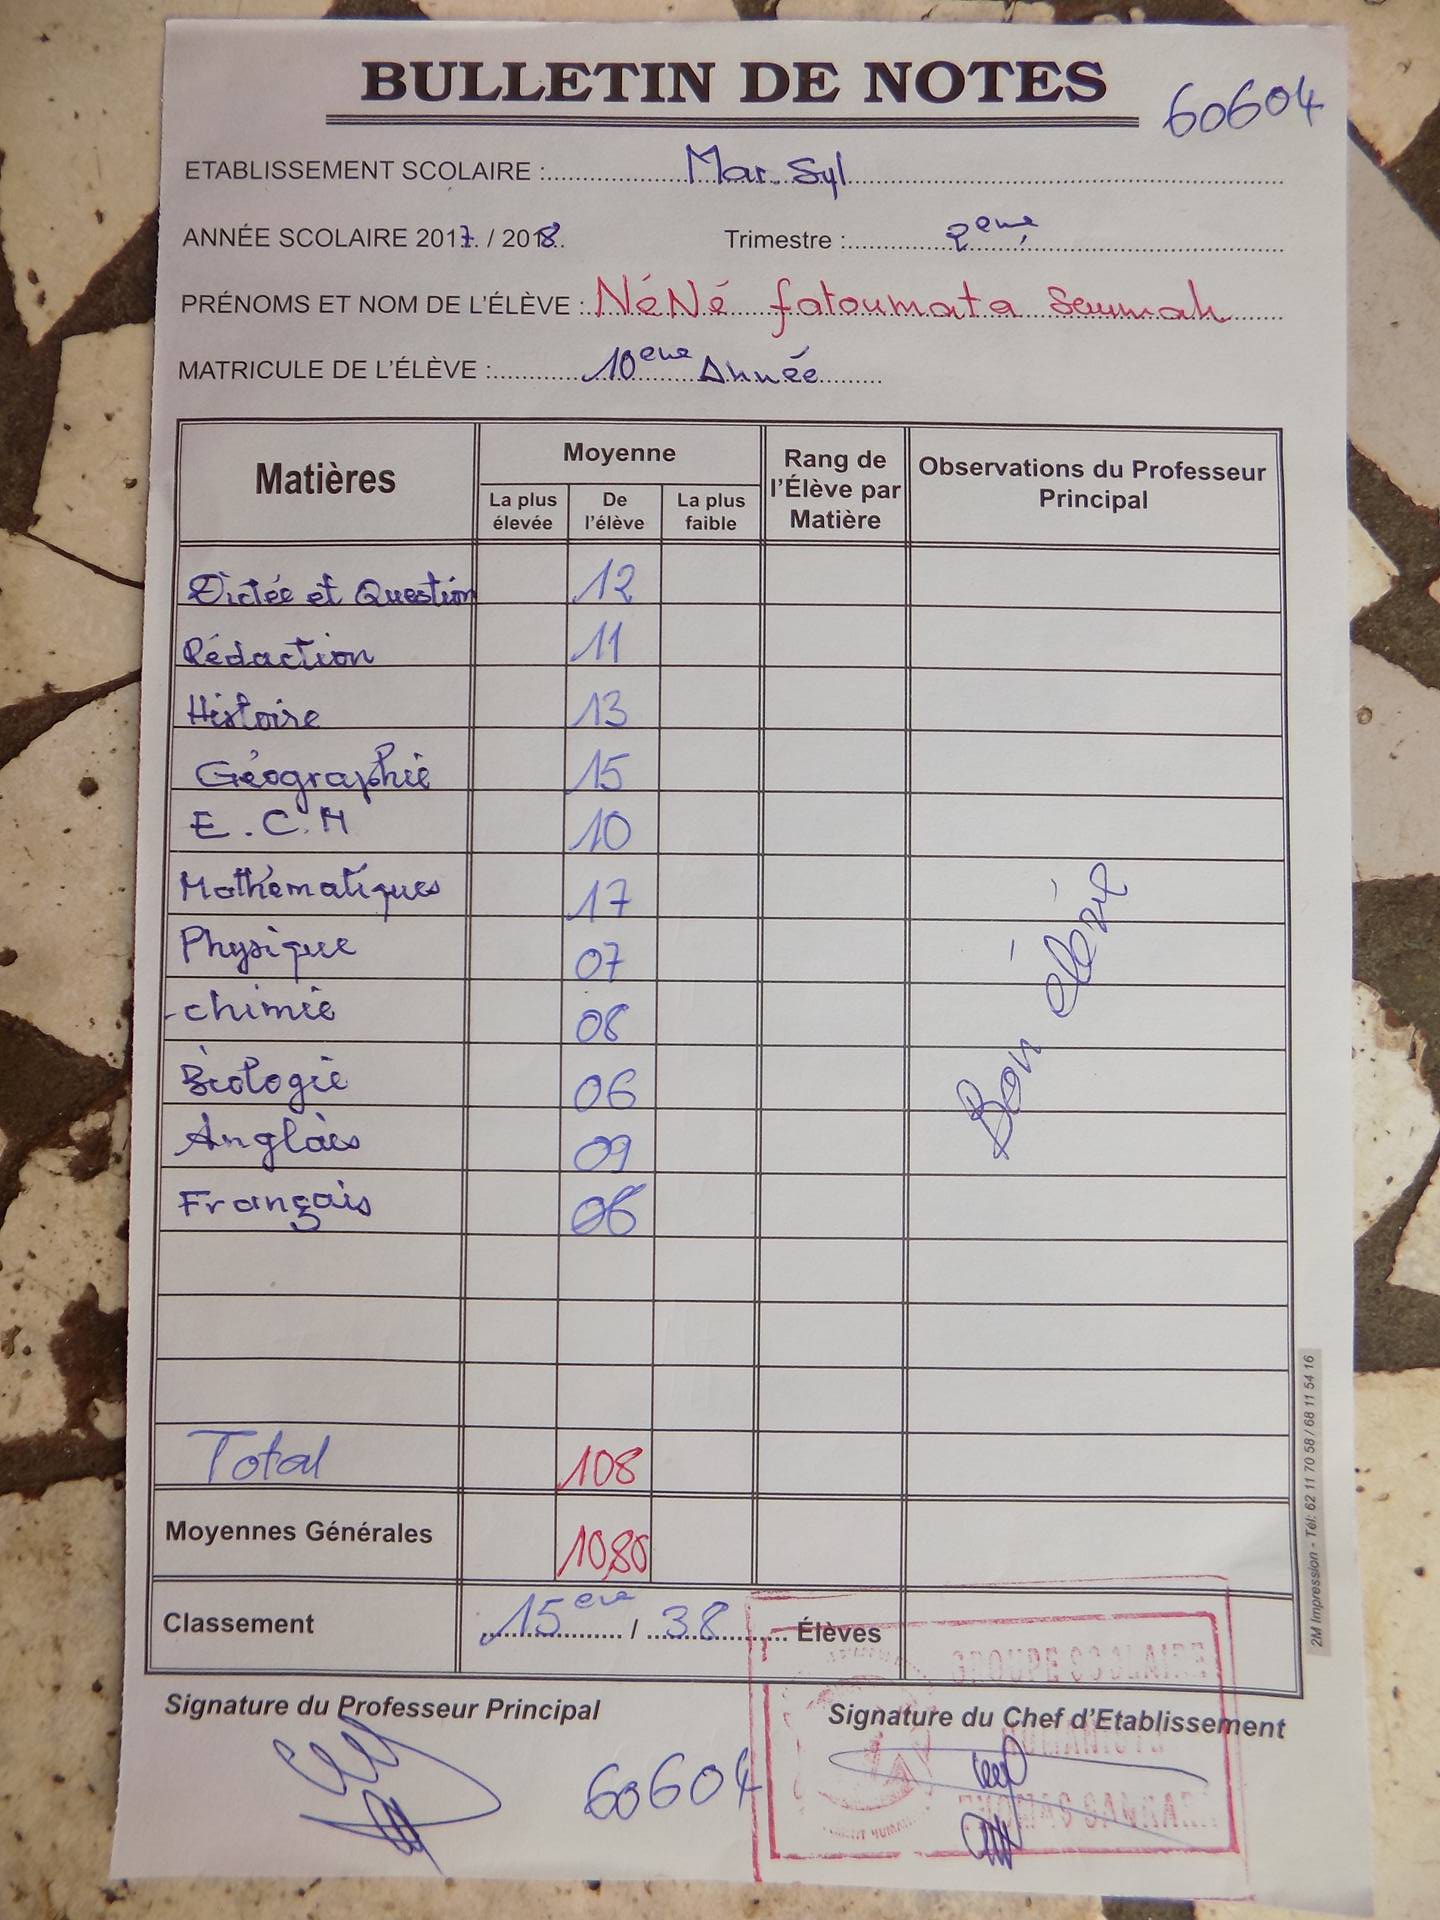 BULLETIN DE NOTES
60604
ETABLISSEMENT SCOLAIRE : Mar Syl
ANNÉE SCOLAIRE 2017 / 2018 Trimestre : 2eme
PRÉNOMS ET NOM DE L'ÉLÈVE : NéNé fatoumata Soumah
MATRICULE DE L'ÉLÈVE : 10eme Année
Matières Moyenne Rang de l'Élève par Matière Observations du Professeur Principal
La plus élevée De l'élève La plus faible
Dictée et Question 12
Rédaction 11
Histoire 13
Géographie 15
E.C.M 10
Mathématiques 17
Physique 07
chimie 08
Biologie 06
Anglais 09
Français
Bon élève
Total 108
Moyennes Générales 10,80
Classement 15eme / 38 Élèves
GROUPE SCOLAIRE
Signature du Professeur Principal Signature du Chef d'Etablissement
60604
2M Impression - Tél: 62 11 70 58 / 68 11 54 16